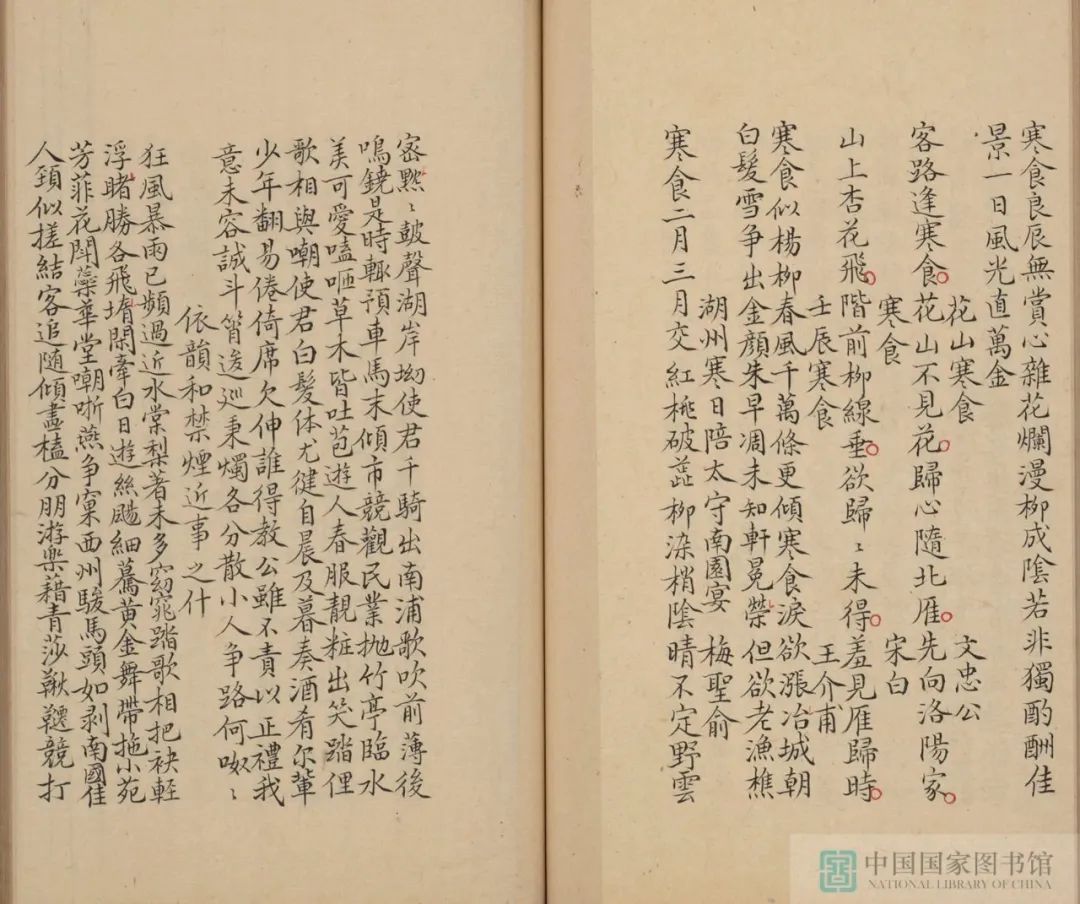 寒食良辰無賞心雜花爛漫柳成陰若非獨酌酬佳
景一日風光直萬金
花山寒食 文忠公
客路逢寒食花山不見花歸心隨北雁先向洛陽家
寒食 宋白
山上杏花飛階前柳線垂欲歸〻未得羞見雁歸時
壬辰寒食 王介甫
寒食似楊柳春風千萬條更傾寒食淚欲漲冶城朝
白髮雪争出金顔朱早凋未知軒冕榮但欲老漁樵
湖州寒日陪太守南園宴 梅聖俞
寒食二月三月交紅桃破蕋柳染梢陰晴不定野雲
宻黙〻鼓聲湖岸坳使君千騎出南浦歌吹前薄後
鳴鐃是時輙預車馬末傾市競觀民業抛竹亭臨水
美可愛嗑咂草木皆吐苞遊人春服靚粧出笑踏俚
歌相與嘲使君白髮体尤健自晨及暮奏酒肴尔輩
少年翻易倦倚席欠伸誰得教公雖不責以正禮我
意未容誠斗筲逡巡秉燭各分散小人争路何呶〻
依韻和禁煙近事之什
狂風暴雨已頻過近水棠梨著未多窈窕踏歌相把袂輊
浮賭勝各飛堶閑牽白日遊絲颺細蓦黄金舞帶拖小苑
芳菲花鬥蘂華堂嘲哳燕争窠西州駿馬頭如剥南國佳
人頸似搓結客追隨傾盡榼分朋游樂藉青莎鞦韆競打
中国国家图书馆
NATIONAL LIBRARY OF CHINA